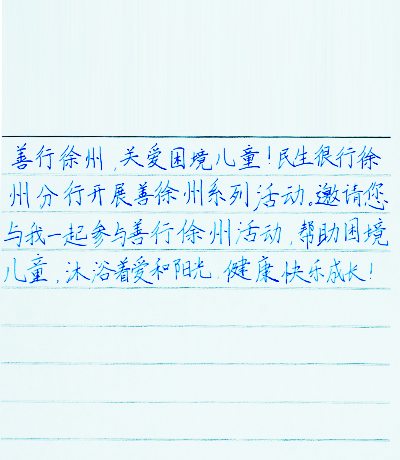 善行徐州,关爱困境儿童!民生很行徐
州分行开展善徐州系列活动。邀请您
与我一起参与善行徐州活动,帮助困境
儿童,沐浴着爱和阳光,健康快乐成长!